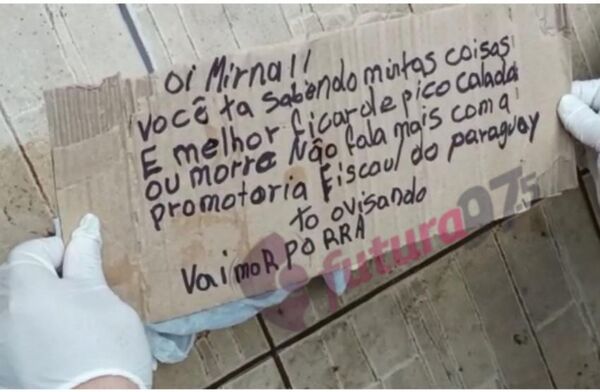 Oi Mirna!!
você ta sabendo muitas coisas
E melhor ficar de pico calada
ou morre Não fala mais com a
promotoria Fiscaul do paraguay
to avisando
Vai moR PORRA
futura97.5